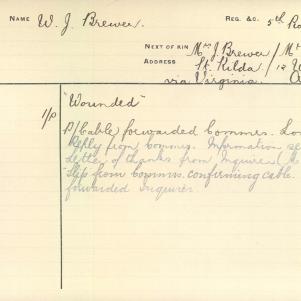 NAME W. J. Brewer. REG. &C. 5th
NEXT OF KIN Mrs J. Brewer /
ADDRESS St. Kilda / 12
via Virginia.
"Wounded"
1/p P/Cable forwarded Commrs.
Reply from Commrs. Information
Letter of thanks from Inquirer
Slip from Commrs. confirming cable
forwarded Inquirer.